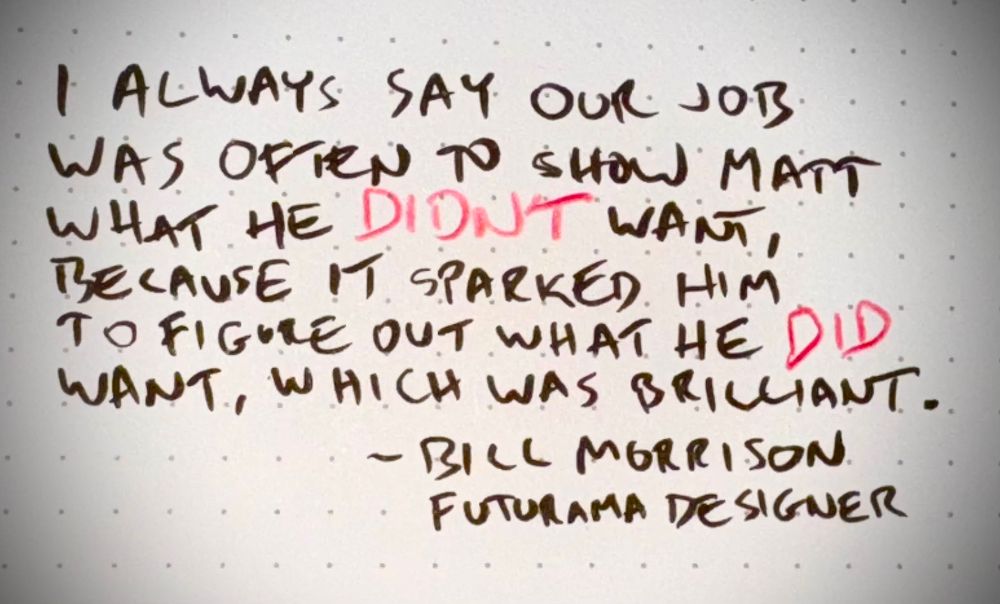 I ALWAYS SAY OUR JOB
WAS OFTEN TO SHOW MATT
WHAT HE DIDN'T WANT,
BECAUSE IT SPARKED HIM
TO FIGURE OUT WHAT HE DID
WANT, WHICH WAS BRILLIANT.
~ BILL MORRISON
FUTURAMA DESIGNER